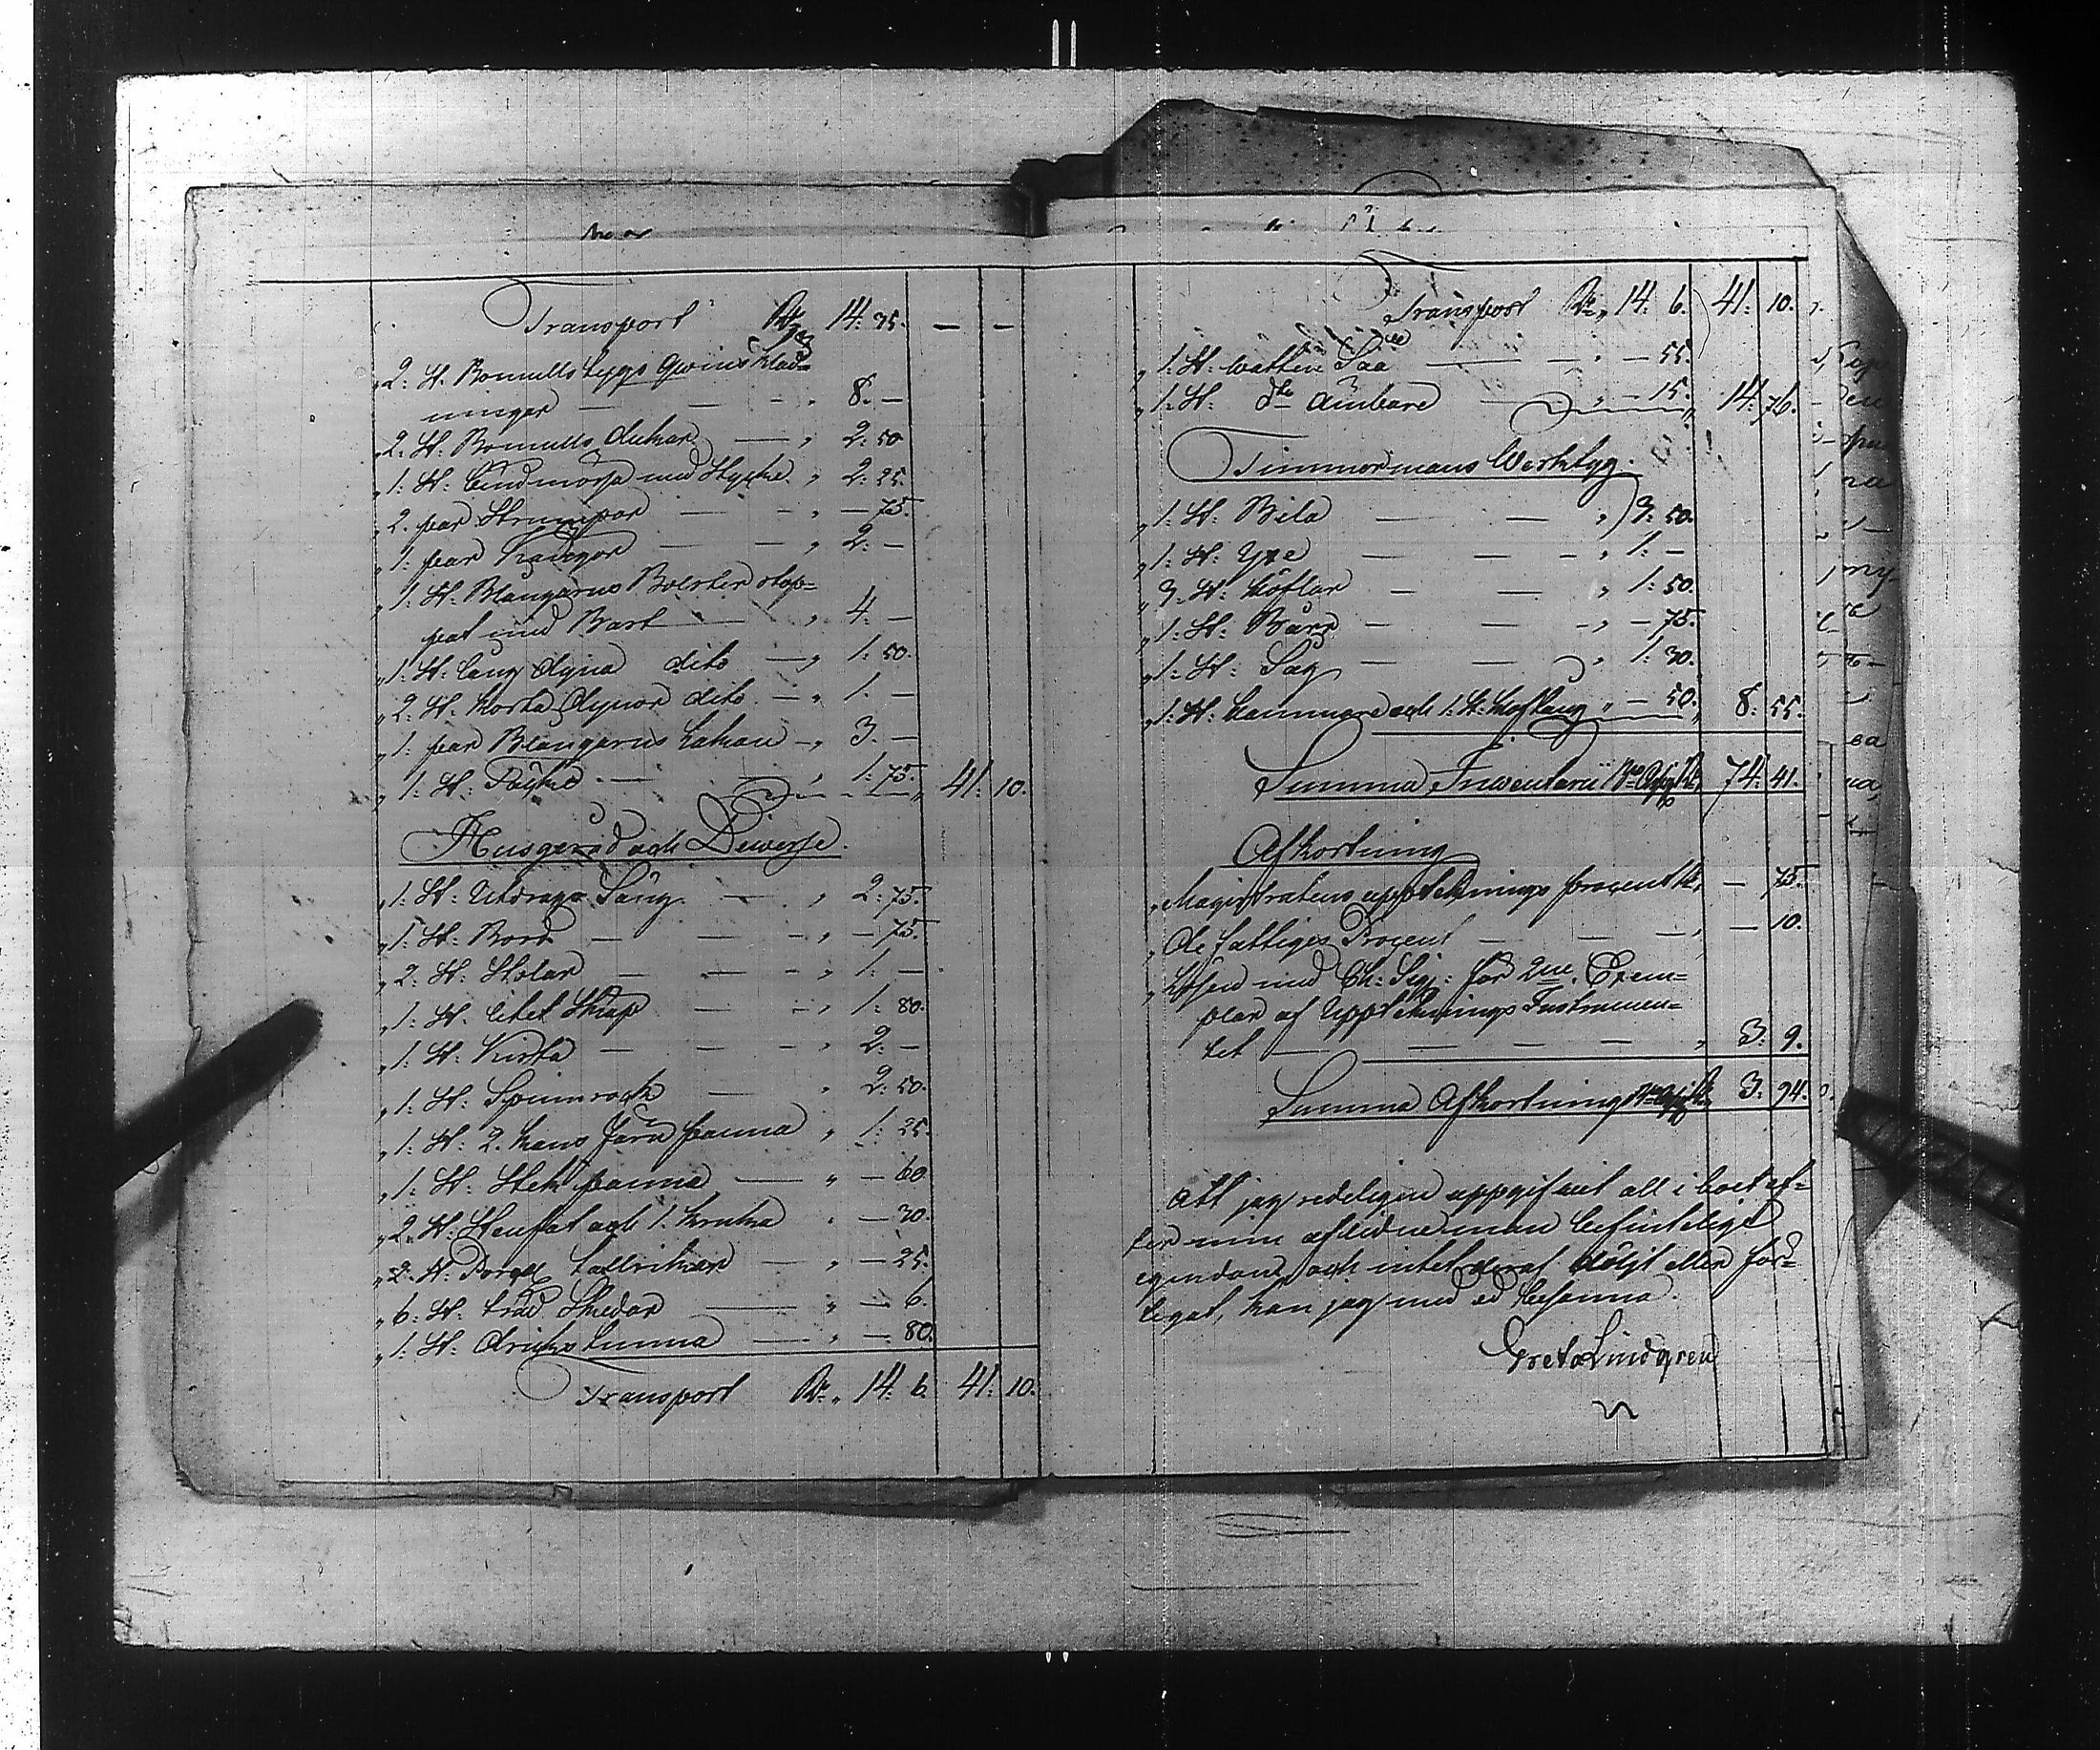 Transport Ro 14: 35. — —
„ 2: St. Bomullstygs Qvins Kläd=
ningar — — — „ 8. —
„ 2: St. Bomulls dukar — „ 2: 50
„ 1: St: Lindmössa med Stycke „ 2: 25.
„ 2. par Strumpor — — „ — 75.
„ 1: par Kängor — — „ 2: —
„ 1: St: Blangarns Bolster stop=
pat med Bast — „ 4. —
„ 1: St: Lang dyna dito — „ 1: 50.
„ 2: St. Korta Dynor dito — „ 1. —
„ 1: par Blangarns Lakan — „ 3. —
„ 1: St: Täcke — — „ 1: 75. „ 41: 10.
Husgeråd och Diverse.
„ 1: St: Utdrags Säng — „ 2: 75.
„ 1: St: Bord — — — „ — 75.
„ 2: St: Stolar — — — „ 1: —
„ 1: St. Litet Skåp — — „ 1: 80.
„ 1: St: Kista — — — „ 2: —
„ 1: St: Spinnrock — „ 2: 50.
„ 1: St: 2. Kans Järn panna „ 1: 25.
„ 1: St: Stek panna — „ — 60
„ 2: St: Stenfat och 1. Kruka „ — 30.
„ 2: St: Porcl. tallrikar — „ — 25.
„ 6: St: träd Skedar — „ — 6.
„ 1: St: Dricks tunna — „ — 80.
Transport Ro „ 14: 6. 41: 10.
Transport Ro „ 14: 6. 41: 10.
„ 1: St: Watten Såå — — „ — 55.
„ 1: St: dto Ämbare — „ — 15. „ 14: 76.
Timmermans Werktyg.
„ 1: St: Bila — — „ 3: 50.
„ 1: St: Yxe — — — „ 1: —
„ 3: St: Höflar — — „ 1: 50.
„ 1: St: Bårr — — — „ — 75.
„ 1: St: Såg — — „ 1: 30.
„ 1: St: Hammare och 1: St: Hoftång „ — 50. „ 8: 55.
Summa Inventarii 74: 41.
Afkortning
„ Magistratens uppteknings procent — 75.
„ de fattiges Procent — — — „ — 10.
„ Lösen med Ch: Sig: för 2ne Exem=
plar af Uppteknings Instrumen=
tet — — — — „ 3: 9.
Summa Afkortning 3: 94.
Att jag redeligen uppgifvit all i boet ef=
ter min aflidne man befintelige
egendom och intet deraf döljt ellerför=
tegat, kan jag med ed besanna.
Greta Lindgren